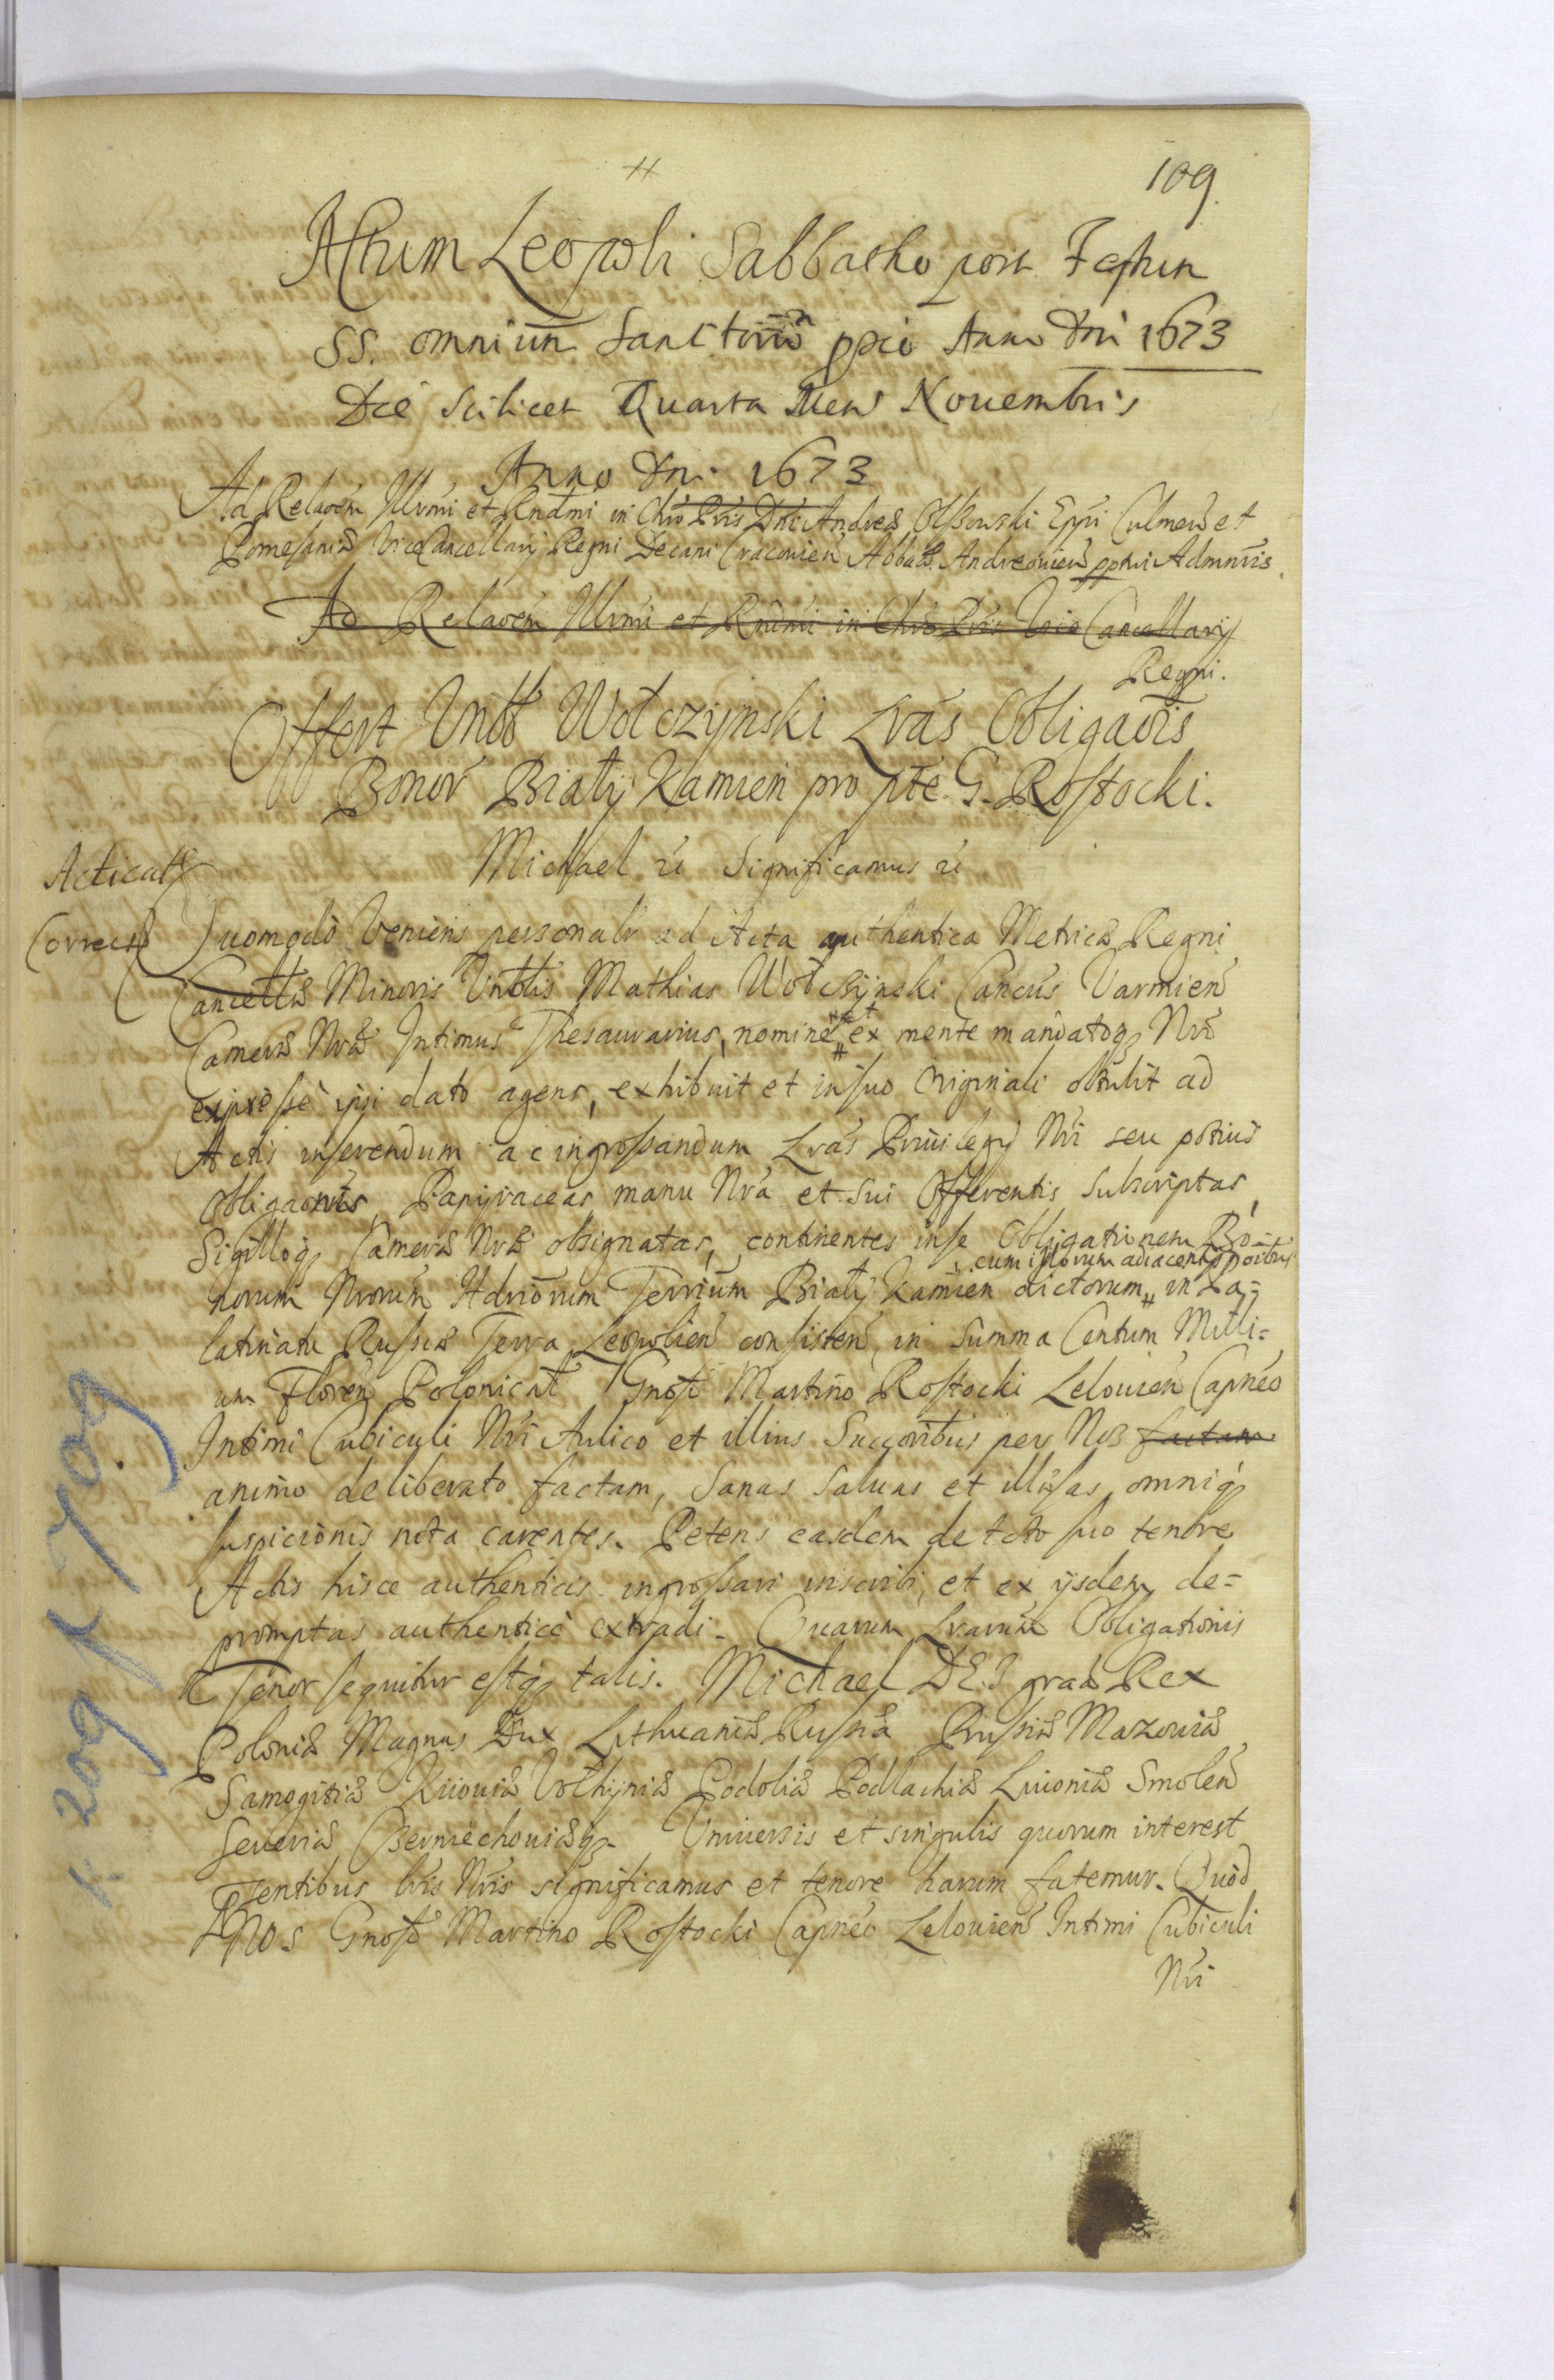 109.
Actum Leopoli Sabbatho post Festum
SS. omnium Sanctorũ pxio Anno Dni 1673
Die scilicet Quarta Mens Nouembris
Anno Dni 1673
Ad Relaoem Illrmi et Rndmi in Chro Pris Dni Andreæ Olszowski Eppi Culmeñ et
Pomesaniæ ViceCancellarij Regni Decani Cracouieñ Abbatis Andreouieñ ppetui Admnris.
Ad Relaoem Illrmi et Rndmi in Chro Pris Vice Cancellarij
Regni.
Offert Vnbt Wołczynski Lras Obligaõis
Bonor Biały Kamień pro pte G. Rostocki.
Michael &c Significamus &c
Acticat
Correcta
Quomodo Veniens personalr ad Acta authentica Metricæ Regni
Cancellæ Minoris Vnblis Mathias Wołczynski Cancus Varmień
Cameræ Nræ Intimus Thesaurarius, nomine et ex mente mandatoq Nro
expresse ipsi dato agens, exhibuit et in suo Originali obtulit ad
Actis inserendum ac ingrossandum Lras Priuilegij Nri seu potius
Obligaonis Papyraceas manu Nra et sui Offerentis subscriptas,
Sigilloq Cameræ Nræ obsignatas, continentes in se Obligationem Bo-
cum illorum adiacentijs oibus
norum Nrorum Hdriorum Terrium Biały Kamien dictorum, in Pa-
latinatu Russiæ Terra Leopolień consisteñ, in Summa Centum Milli-
um Floreñ Polonicat Gnoso Martino Rostocki Lelouień Capneo
Intimi Cubiculi Nri Aulico et illius Succoribus per Nos factam
animo deliberato factam, Sanas Saluas et illæsas, omniq
suspicionis nota carentes. Petens easdem de toto suo tenore
Actis hisce authenticis ingrossari inscribi, et ex ijsdem de-
promptas authentice extradi. Quarum Lrarum Obligationis
Tenor sequitur estq talis. Michael DEI graa Rex
Poloniæ Magnus Dux Lithuaniæ Russiæ Prussiæ Mazouiæ
Samogitiæ Kiiouiæ Volhyniæ Podoliæ Podlachiæ Liuoniæ Smoleñ
Seueriæ Czerniechouiæq. Vniuersis et singulis quorum interest
Pñtibus lris Nris significamus et tenore harum fatemur. Quod
Nos Gnoso Martino Rostocki Capneo Lelouień Intimi Cubiculi
Nri
k 209 k 109